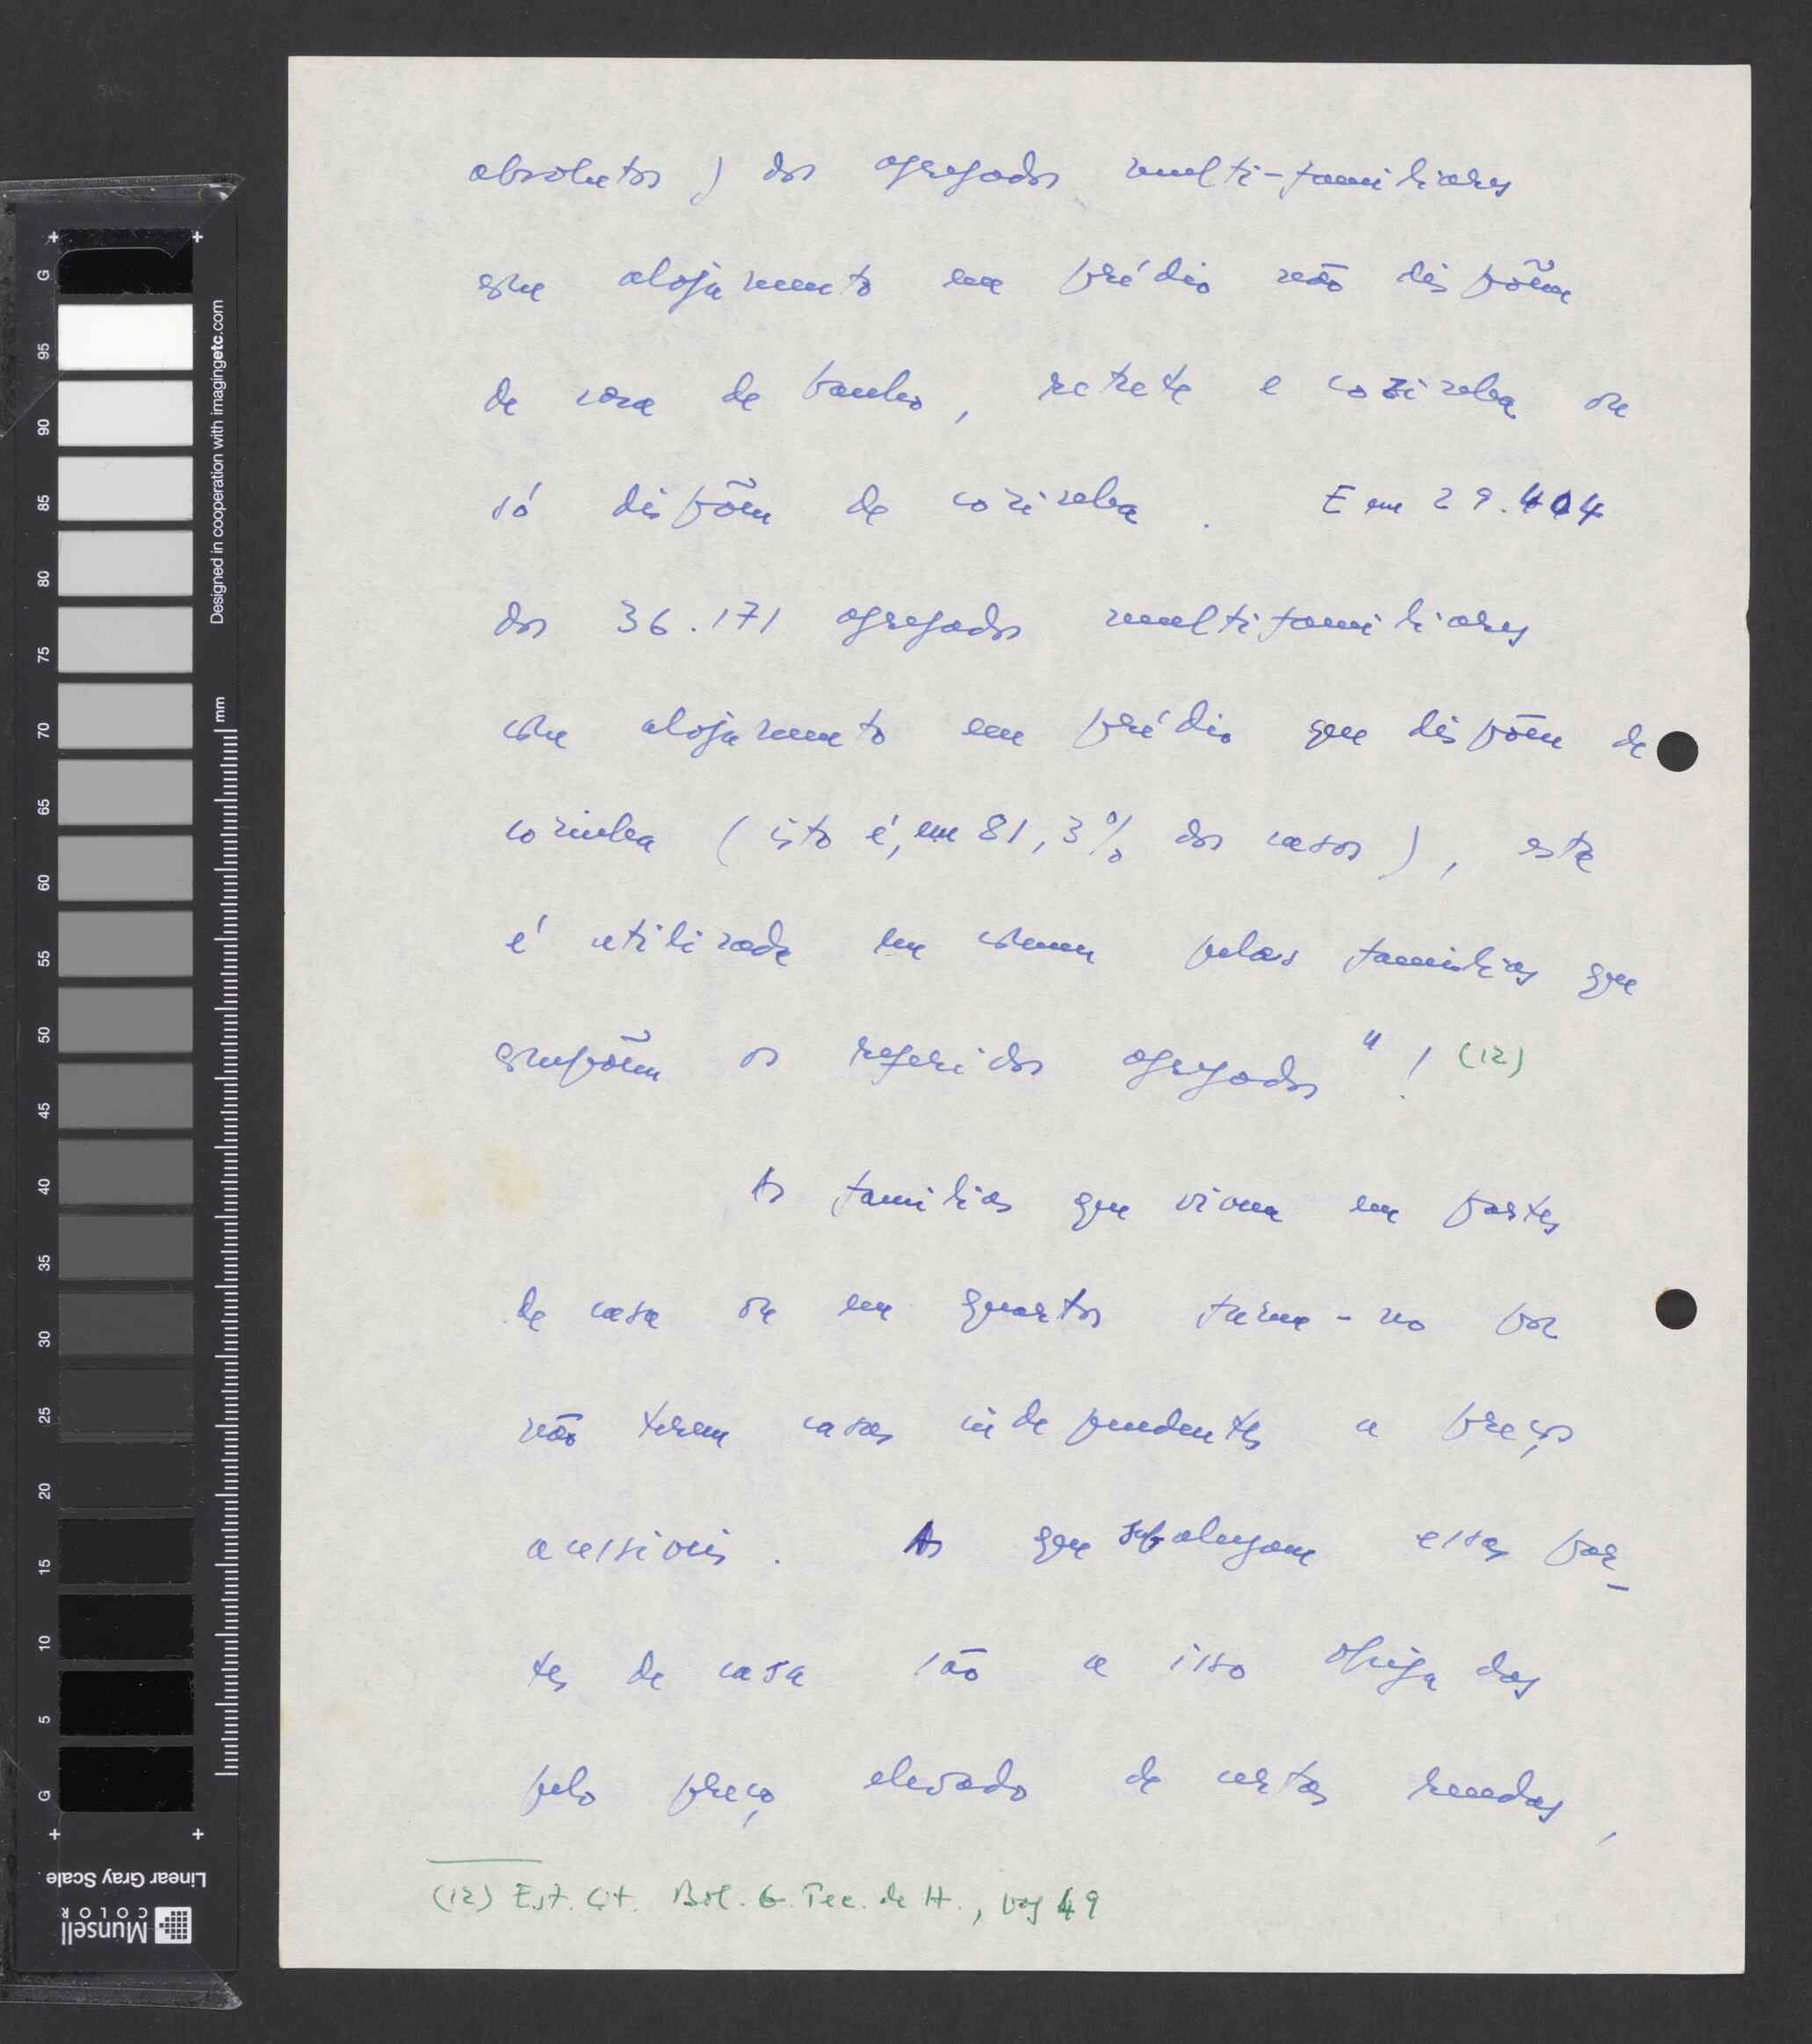 absolutos) dos agregados multi-familiares
com alojamento em prédio não dispõem
de casa de banho, retrete e cozinha ou
só dispõem de cozinha. Em 29.414
dos 36.171 agregados multifamiliares
com alojamento em prédio que dispõem de
cozinha (isto é, em 81,3% dos casos), esta
é utilizada em comum pelas famílias que
compõem os referidos agregados"! (12)
As famílias que vivem em partes
de casa ou em quartos fazem-no por
não terem casas independentes a preços
acessíveis. As que subalugam essas par-
tes de casa são a isso obrigadas
pelo preço elevado de certas rendas,
(12) Est. Cit. Bol. G. Tec. de H., pag 49
G
95
90
85
80
75
70
65
60
55
50
45
40
35
30
25
20
15
10
5
G
mm
Designed in cooperation with imagingetc.com
Linear Gray Scale
Munsell
COLOR